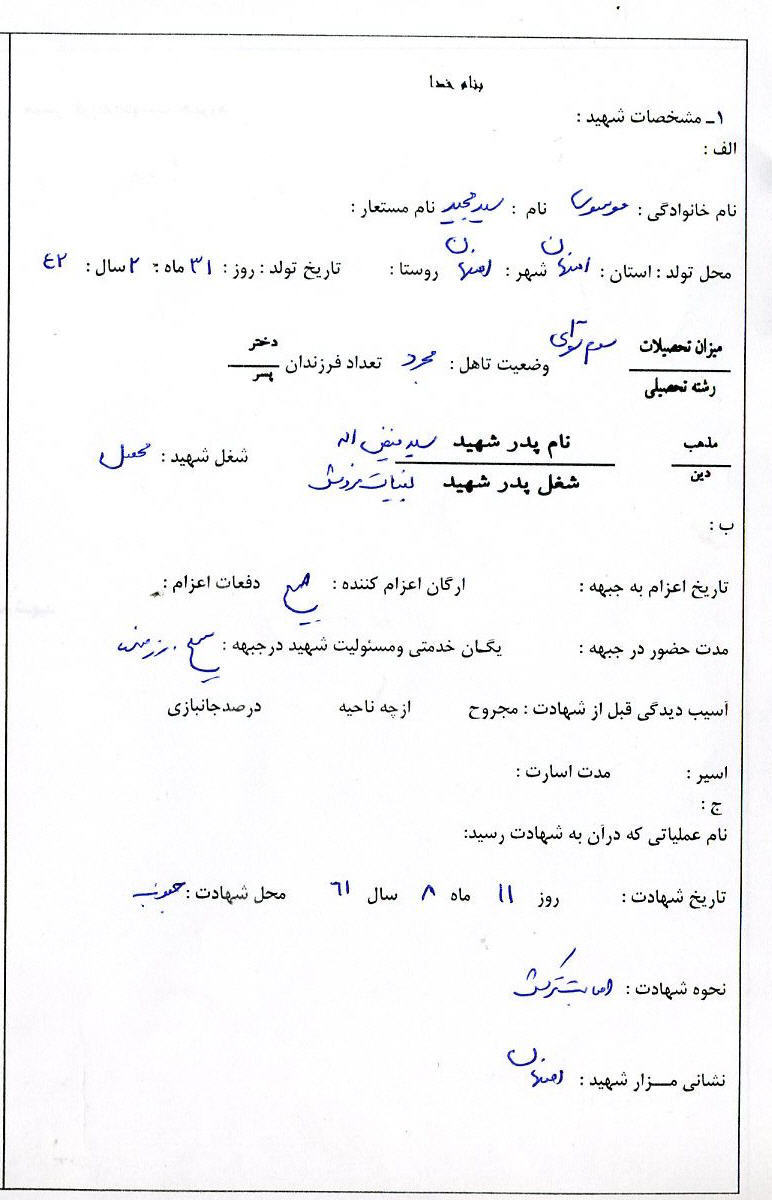 بنام خدا
۱ـ مشخصات شهید :
الف :
نام خانوادگی : موسوی نام : سید مجید نام مستعار :
محل تولد : استان : اصفهان شهر : اصفهان روستا : تاریخ تولد : روز : ۳۱ ماه : ۲ سال : ۴۲
میزان تحصیلات سوم
رشته تحصیلی
وضعیت تاهل : مجرد تعداد فرزندان دختر
پسر
مذهب
دین
نام پدر شهید سید فیض اله
شغل پدر شهید لبنیات فروش
شغل شهید : محصل
ب :
تاریخ اعزام به جبهه : ارگان اعزام کننده : بسیج دفعات اعزام :
مدت حضور در جبهه : یگان خدمتی ومسئولیت شهید درجبهه : بسیج . رزمنده
آسیب دیدگی قبل از شهادت : مجروح ازچه ناحیه درصدجانبازی
اسیر : مدت اسارت :
ج :
نام عملیاتی که درآن به شهادت رسید:
تاریخ شهادت : روز ۱۱ ماه ۸ سال ۶۱ محل شهادت : جنوب
نحوه شهادت : اصابت ترکش
نشانی مـــزار شهید : اصفهان